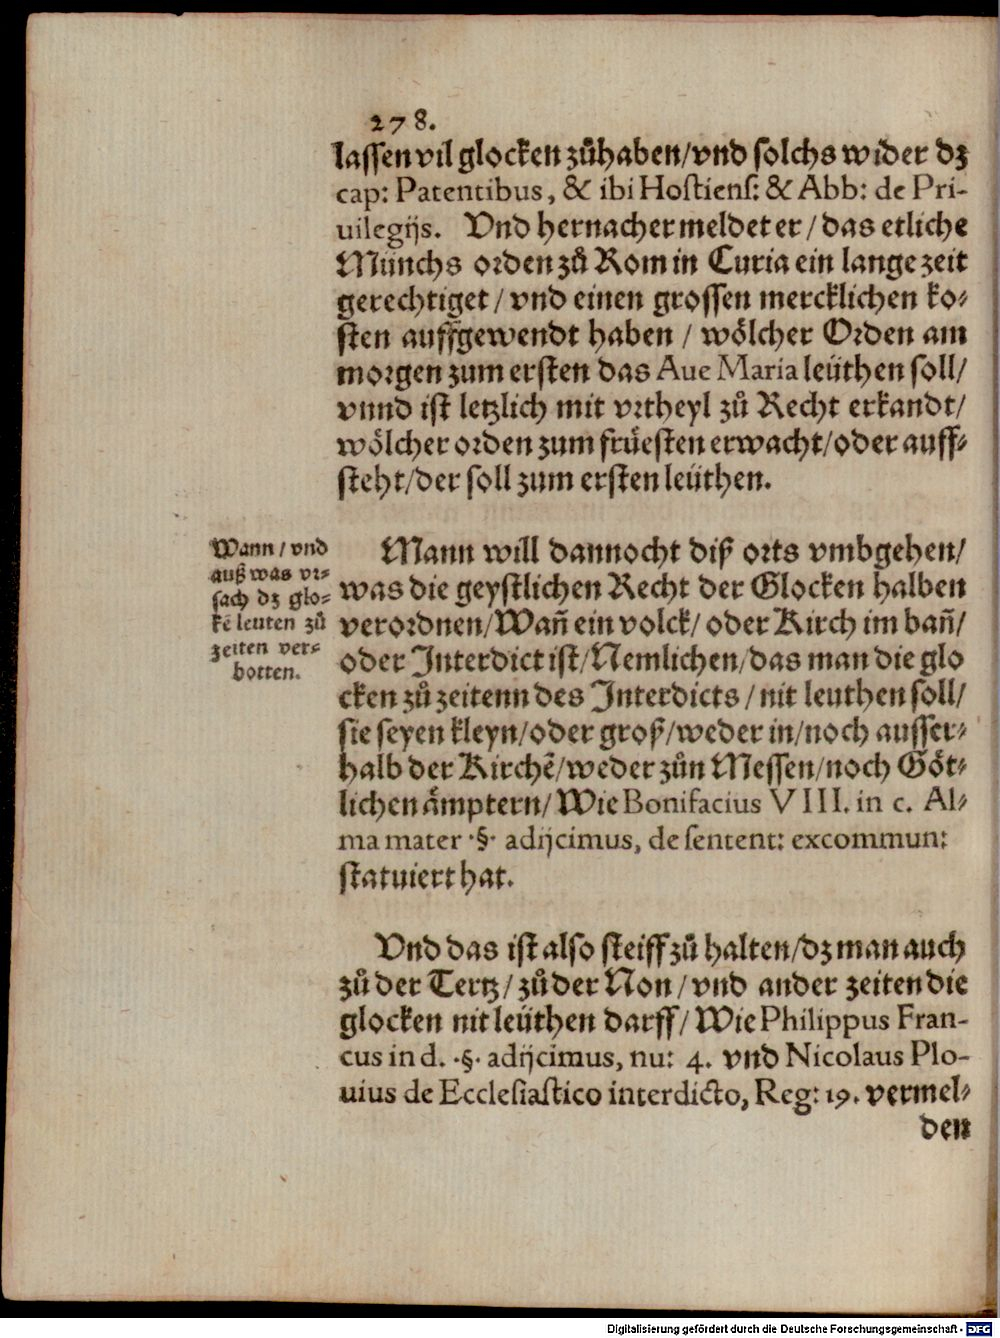 278.
lassen vil glocken zů haben/vnd solchs wider dz
cap: Patentibus, & ibi Hostiens: & Abb: de Pri-
uilegijs. Vnd hernacher meldet er/das etliche
Münchs orden zů Rom in Curia ein lange zeit
gerechtiget/vnd einen grossen mercklichen ko-
sten auffgewendt haben/wölcher Orden am
morgen zum ersten das Aue Maria leüthen soll/
vnnd ist letzlich mit vrtheyl zů Recht erkandt/
wölcher orden zum früesten erwacht/oder auff-
steht/der soll zum ersten leüthen.
Wann/vnd
auß was vr-
sach dz glo-
kẽ leuten zů
zeiten ver-
botten.
Mann will dannocht diß orts vmbgehen/
was die geystlichen Recht der Glocken halben
verordnen/Wañ ein volck/oder Kirch im bañ/
oder Interdict ist/Nemlichen/das man die glo
cken zů zeitenn des Interdicts/nit leuthen soll/
sie seyen kleyn/oder groß/weder in/noch ausser-
halb der Kirchẽ/weder zůn Messen/noch Göt-
lichen ämptern/Wie Bonifacius VIII. in c. Al-
ma mater ·§· adijcimus, de sentent: excommun:
statuiert hat.
Vnd das ist also steiff zů halten/dz man auch
zů der Tertz/zů der Non/vnd ander zeiten die
glocken nit leüthen darff/Wie Philippus Fran-
cus in d. ·§· adijcimus, nu: 4. vnd Nicolaus Plo-
uius de Ecclesiastico interdicto, Reg: 19. vermel-
den
Digitalisierung gefördert durch die Deutsche Forschungsgemeinschaft - DFG